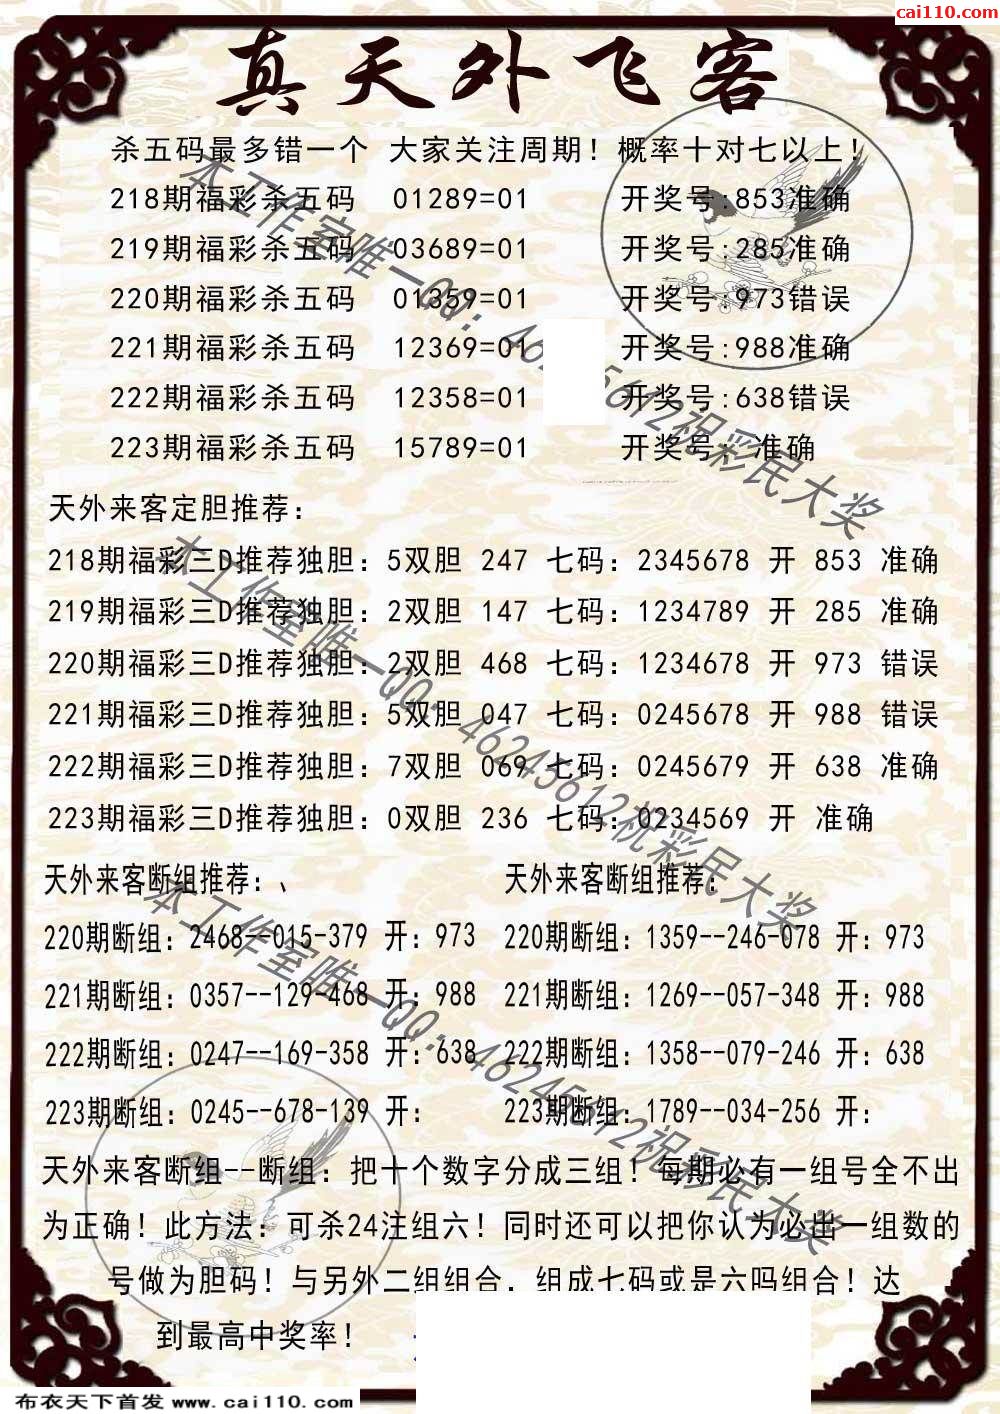 cai110.com
真天外飞客
杀五码最多错一个 大家关注周期！概率十对七以上！
218期福彩杀五码 01289=01 开奖号:853准确
219期福彩杀五码 03689=01 开奖号:285准确
220期福彩杀五码 01359=01 开奖号:973错误
221期福彩杀五码 12369=01 开奖号:988准确
222期福彩杀五码 12358=01 开奖号:638错误
223期福彩杀五码 15789=01 开奖号: 准确
本工作室唯一QQ：46245612祝彩民大奖
天外来客定胆推荐：
218期福彩三D推荐独胆：5双胆 247 七码：2345678 开 853 准确
219期福彩三D推荐独胆：2双胆 147 七码：1234789 开 285 准确
220期福彩三D推荐独胆：2双胆 468 七码：1234678 开 973 错误
221期福彩三D推荐独胆：5双胆 047 七码：0245678 开 988 错误
222期福彩三D推荐独胆：7双胆 069 七码：0245679 开 638 准确
223期福彩三D推荐独胆：0双胆 236 七码：0234569 开 准确
本工作室唯一QQ：46245612祝彩民大奖
天外来客断组推荐：、 天外来客断组推荐：
220期断组：2468--015-379 开：973 220期断组：1359--246-078 开：973
221期断组：0357--129-468 开：988 221期断组：1269--057-348 开：988
222期断组：0247--169-358 开：638 222期断组：1358--079-246 开：638
223期断组：0245--678-139 开： 223期断组：1789--034-256 开：
本工作室唯一QQ：46245612祝彩民大奖
天外来客断组--断组：把十个数字分成三组！每期必有一组号全不出
为正确！此方法：可杀24注组六！同时还可以把你认为必出一组数的
号做为胆码！与另外二组组合，组成七码或是六吗组合！达
到最高中奖率！
布衣天下首发 www.cai110.com